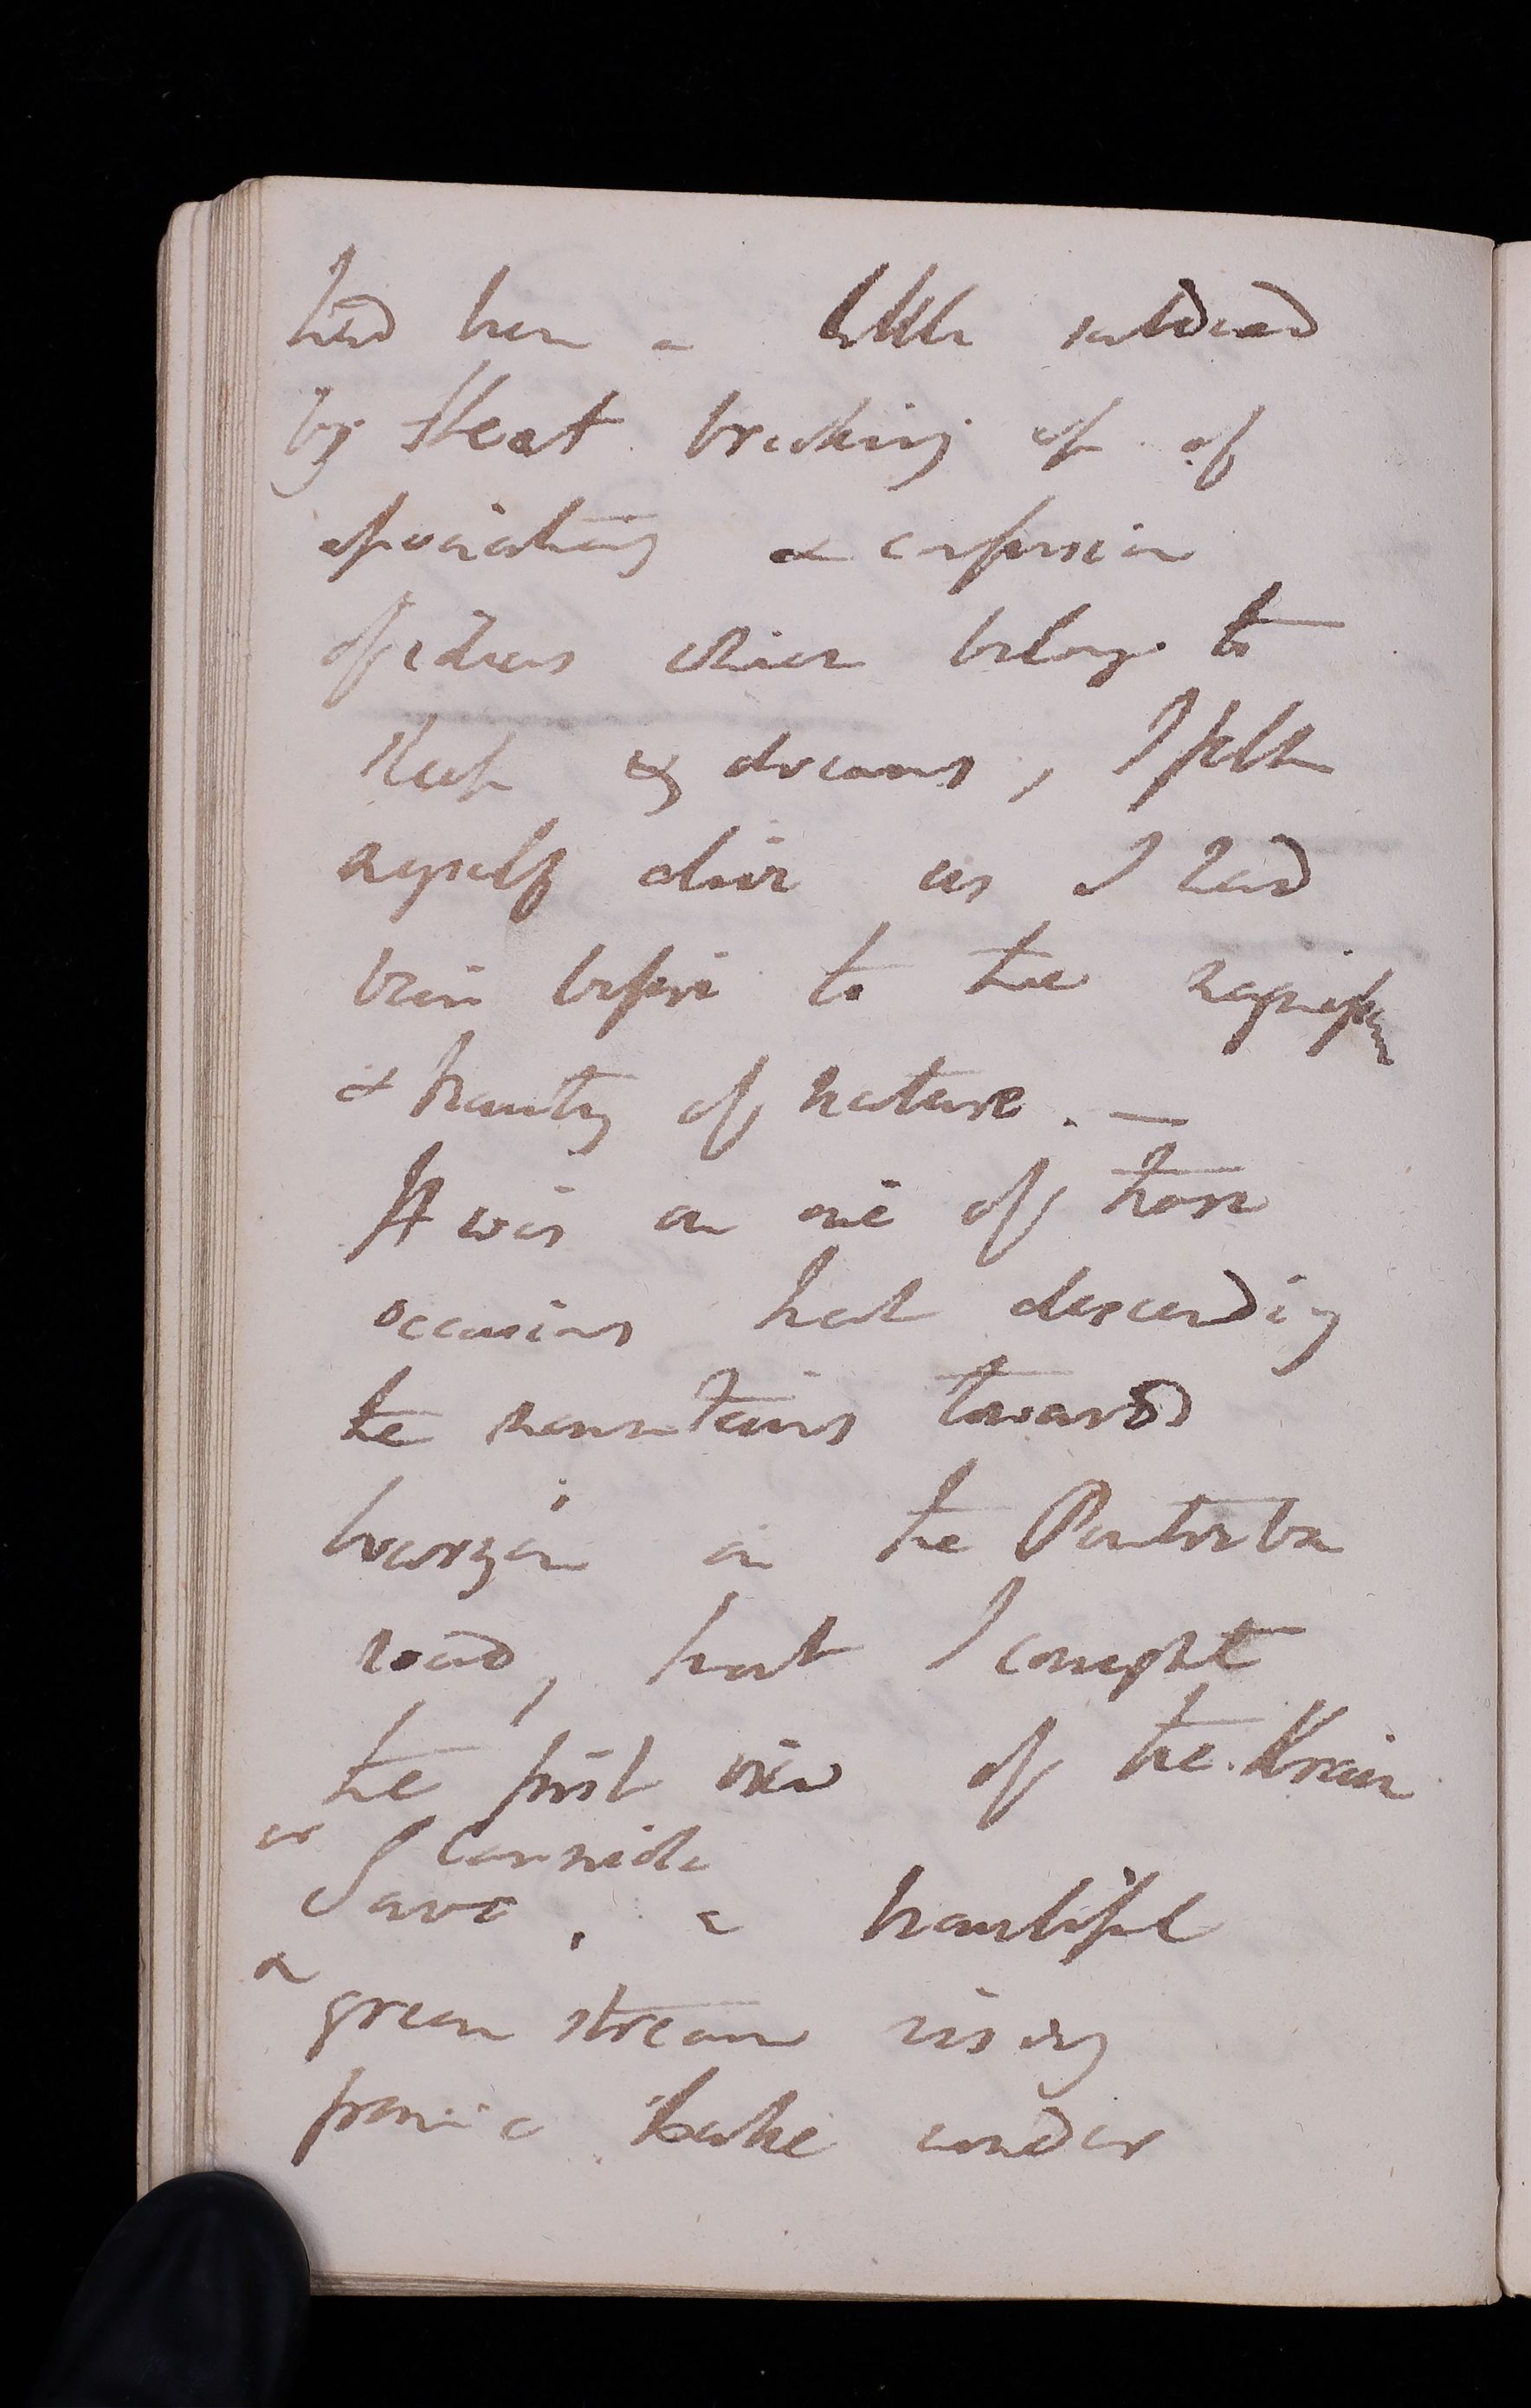 had been a little subdued
by that breaking up of
associations & confusion
of ideas which belongs to
sleep & dreams, I felt
myself alive as I had
been before to the magnificence
& beauty of nature. —
It was on one of those
occasions that descending
the mountains towards
Wurzen on the Ponteba
road, that I caught
the first view of the Krain
or Carniola
Save, a beautiful
&
green stream rising
from a Lake under